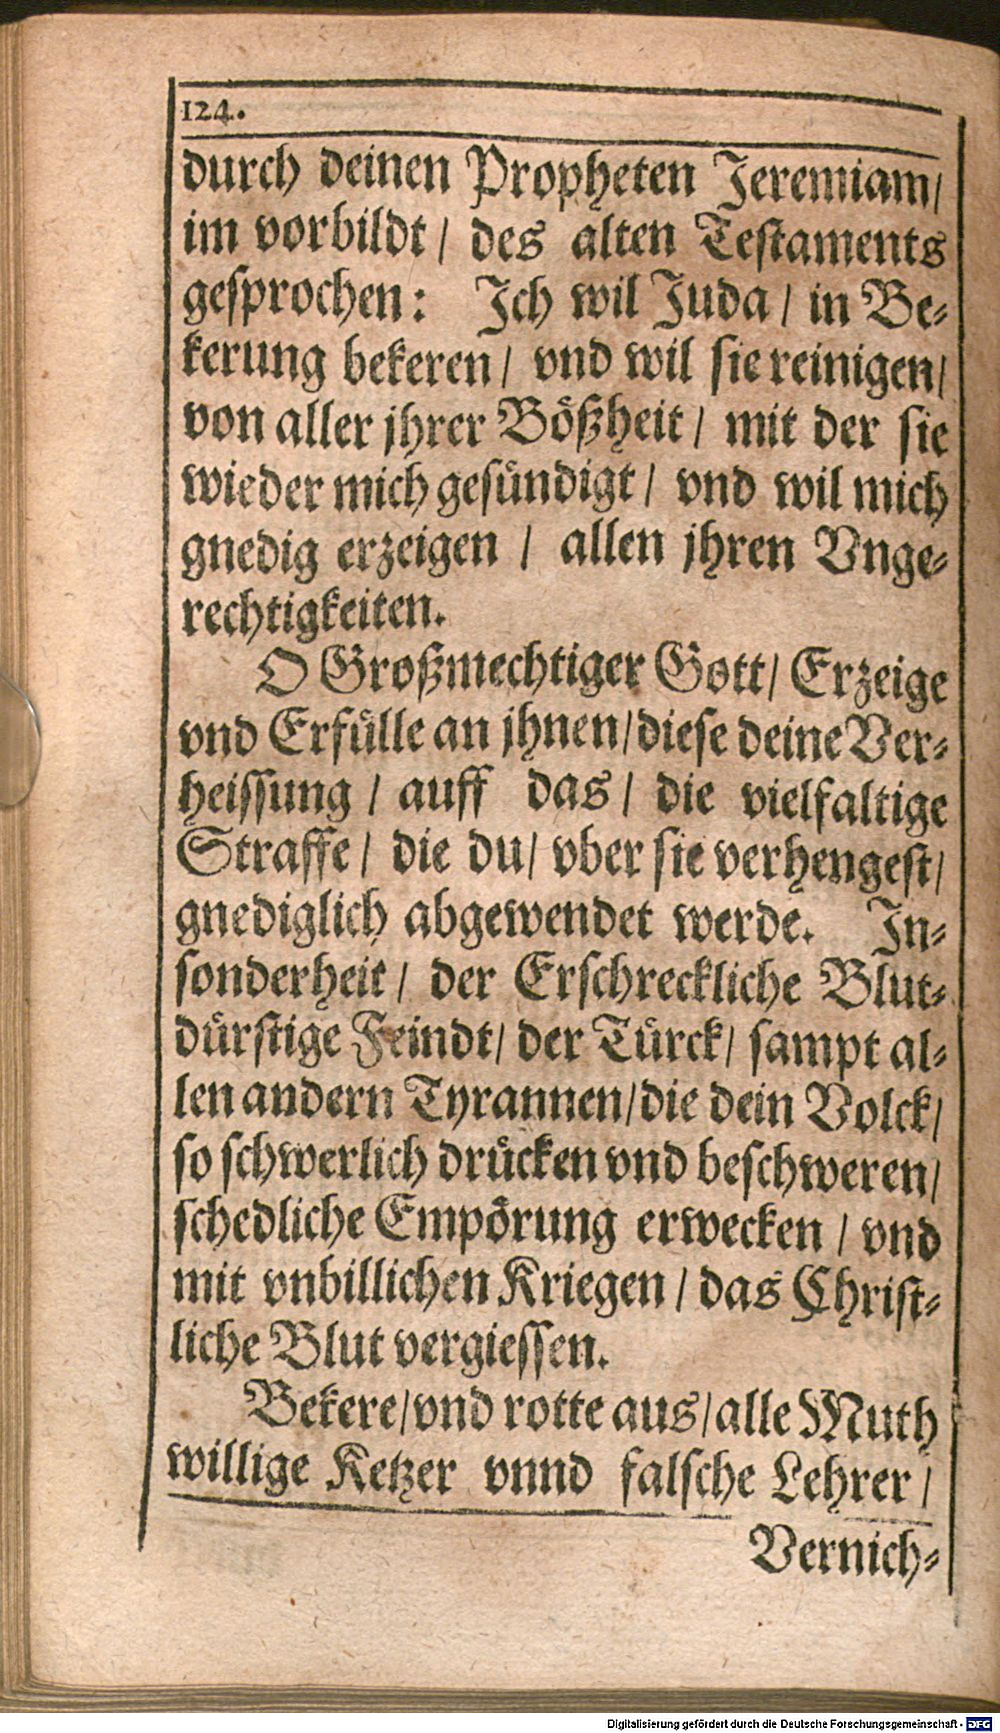 124.
durch deinen Propheten Jeremiam/
im vorbildt/ des alten Testaments
gesprochen: Ich wil Juda/ in Be-
kerung bekeren/ vnd wil sie reinigen/
von aller jhrer Bößheit/ mit der sie
wieder mich gesündigt/ vnd wil mich
gnedig erzeigen/ allen jhren Vnge-
rechtigkeiten.
O Großmechtiger Gott/ Erzeige
vnd Erfülle an jhnen/ diese deine Ver-
heissung/ auff das/ die vielfaltige
Straffe/ die du/ vber sie verhengest/
gnediglich abgewendet werde. In-
sonderheit/ der Erschreckliche Blut-
dürstige Feindt/ der Türck/ sampt al-
len andern Tyrannen/ die dein Volck/
so schwerlich drücken vnd beschweren/
schedliche Empörung erwecken/ vnd
mit vnbillichen Kriegen/ das Christ-
liche Blut vergiessen.
Bekere/ vnd rotte aus/ alle Muth
willige Ketzer vnnd falsche Lehrer/
Vernich-
Digitalisierung gefördert durch die Deutsche Forschungsgemeinschaft - DFG